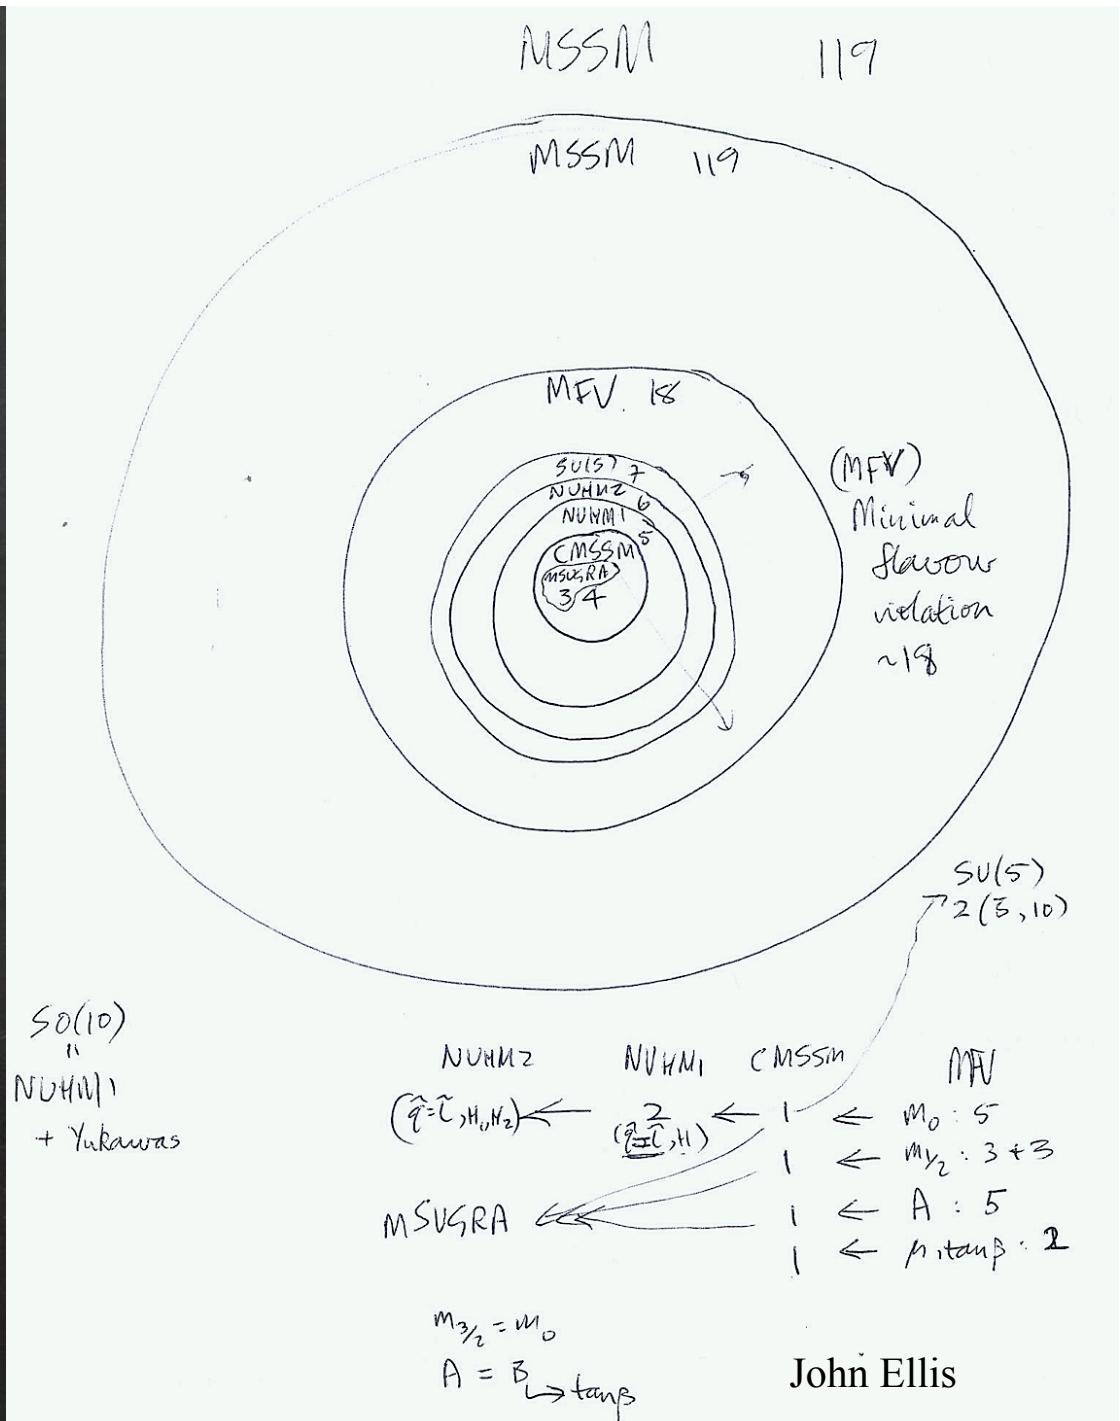 MSSM 119
MSSM 119
MFV 18
SU(5) 7
NUHM2 6
NUHM1 5
CMSSM
MSUGRA
3 4
(MFV)
Minimal
flavour
violation
~18
SU(5)
2(5̄,10)
SO(10)
=
NUHM1
+ Yukawas
NUHM2 NUHM1 CMSSM MFV
(q̃=l̃,H₁,H₂) ← 2 ← 1 ← m₀ : 5
(q̃=l̃,H) 1 ← m₁/₂ : 3+3
MSUGRA ← 1 ← A : 5
1 ← μ,tanβ : 2
m₃/₂ = m₀
A = B
↳ tanβ
John Ellis